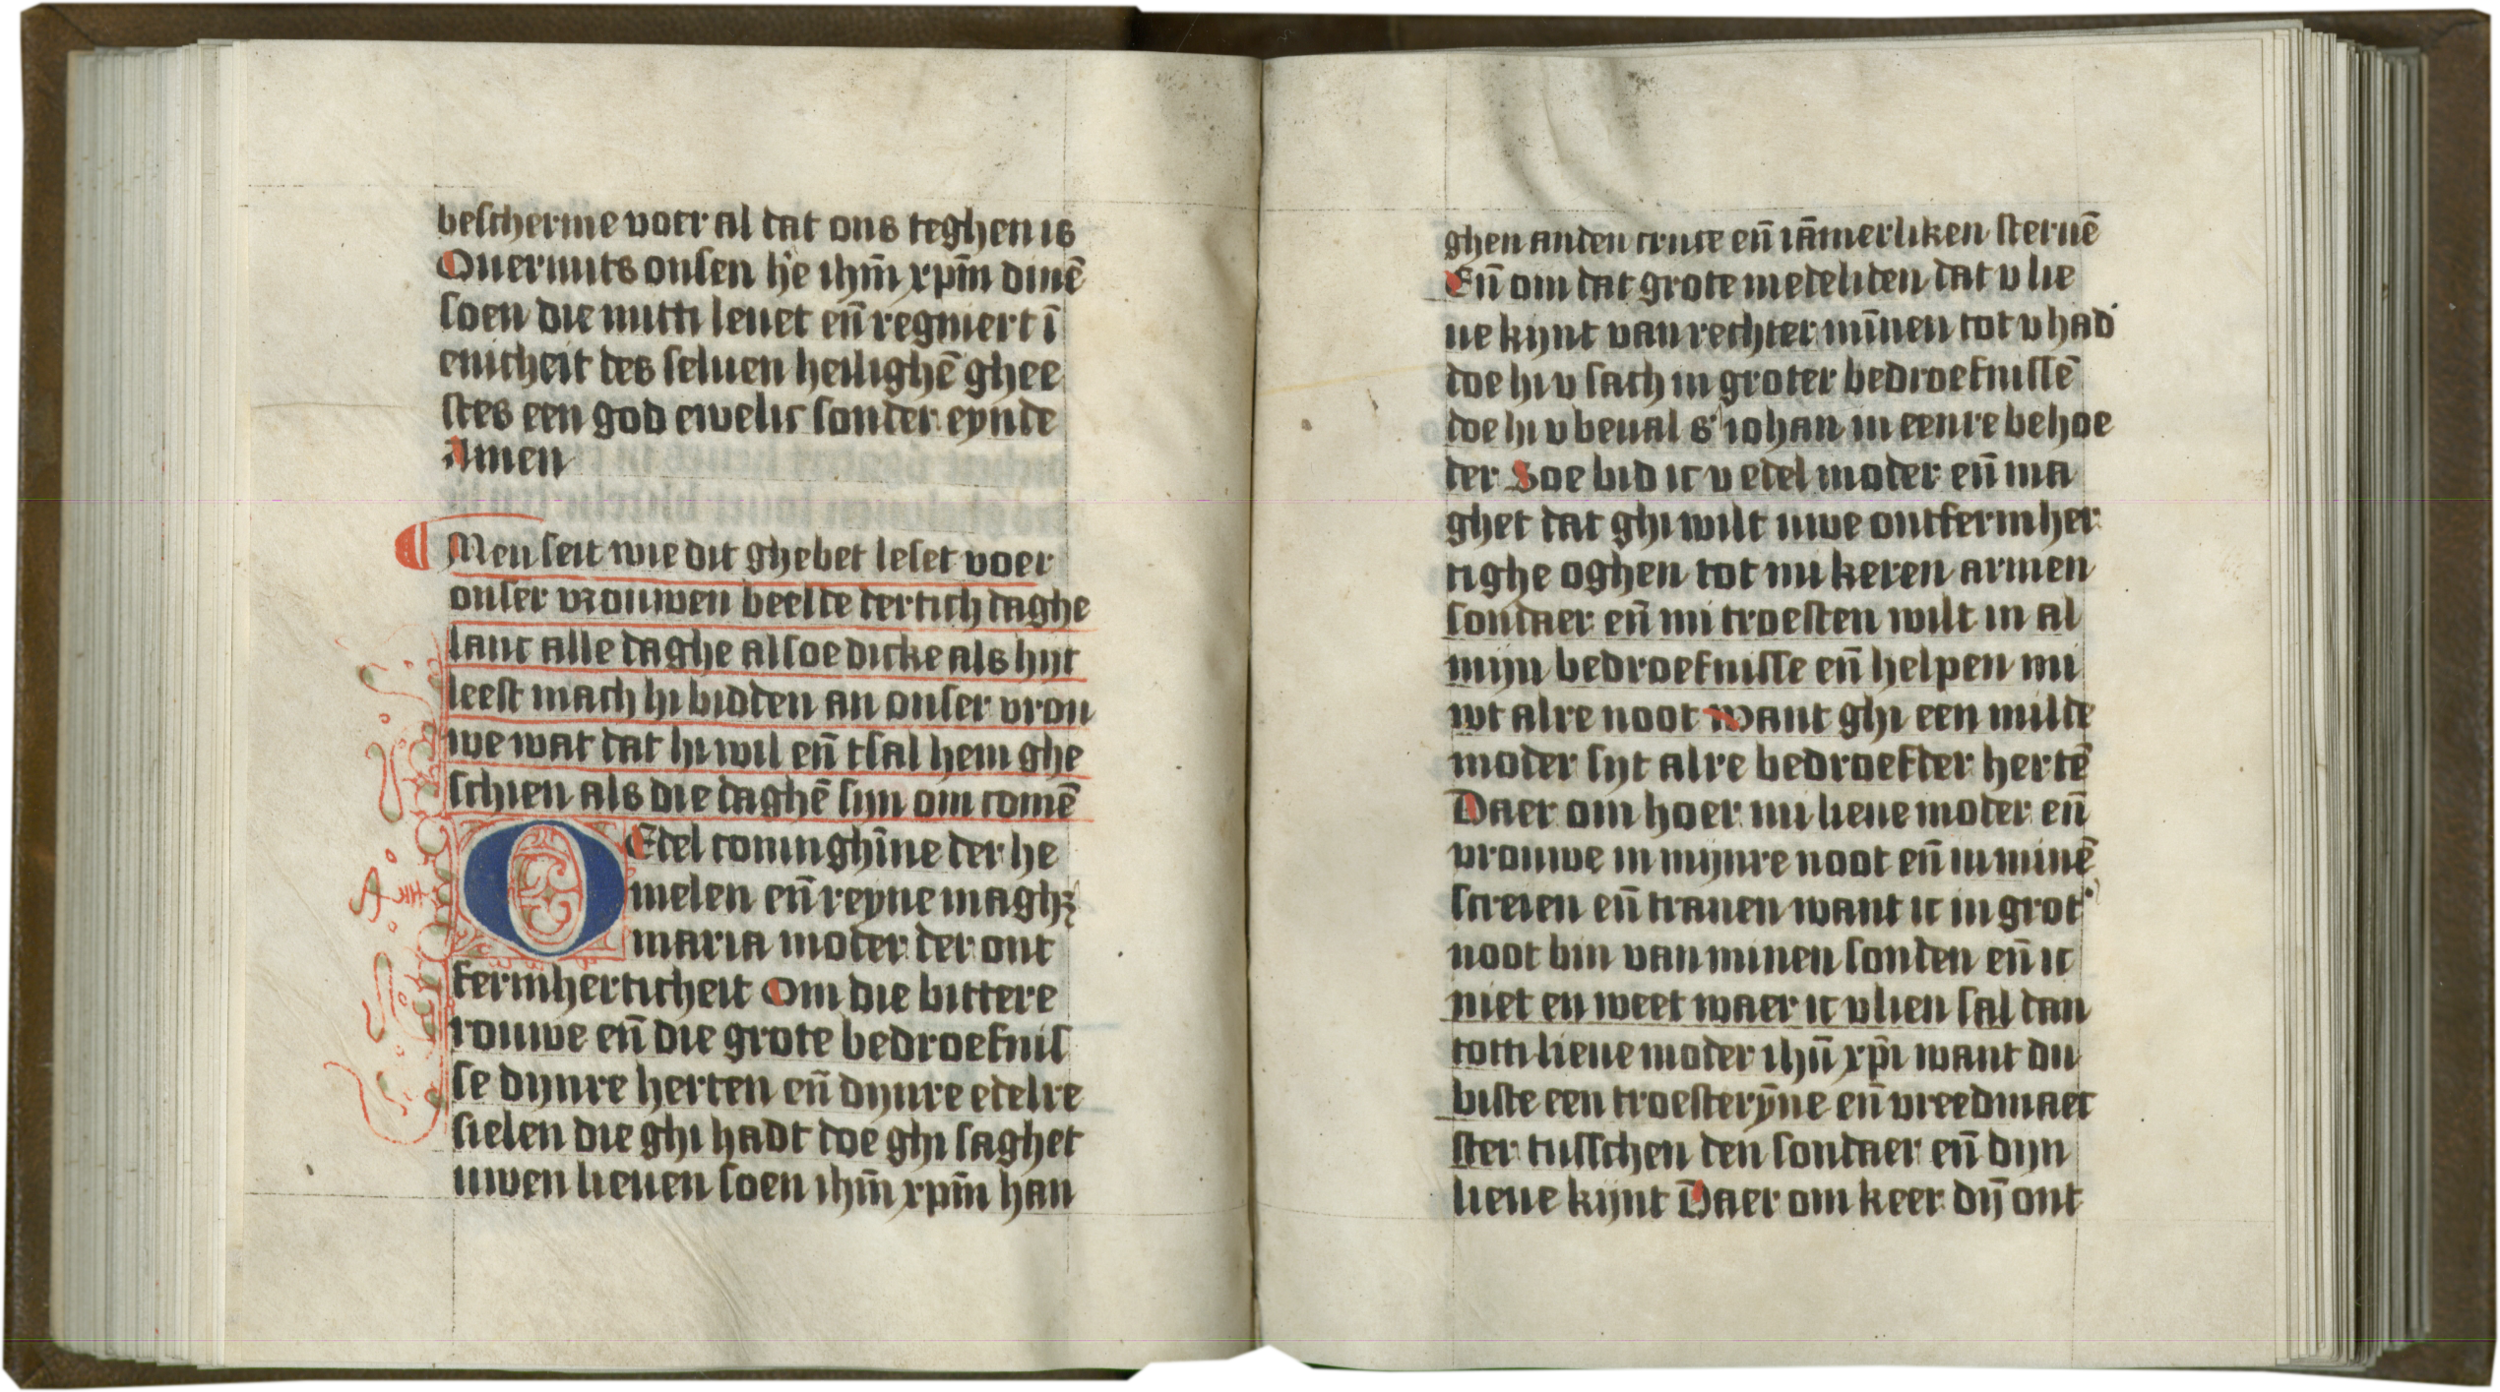 bescherme voer al dat ons teghen is
Ouermits onsen he᷒ ihm̄ xpm̄ dinē
soen die mitti leuet en̄ regniert ī
enicheit des seluen heilighē ghee
stes een god ewelic sonder eynde
Amen
Men seit wie dit ghebet leset voer
onser vrouwen beelde dertich daghe
lanc alle daghe alsoe dicke als hijt
leest mach hi bidden an onser vrou
we wat dat hi wil en̄ tsal hem ghe
schien als die daghē sijn om comē
O Edel coninghīne der he
melen en̄ reyne maghꝫ
maria moder der ont
fermherticheit Om die bittere
rouwe en̄ die grote bedroefnis
se dijnre herten en̄ dijnre edelre
sielen die ghi hadt doe ghi saghet
uwen lieuen soen ihm̄ xpm̄ han
ghen anden cruce en̄ iāmerliken steruē
En̄ om dat grote medeliden dat v lie
ue kijnt van rechter mīnen tot v had
doe hi v sach in groter bedroefnissē
doe hi v beual s' iohan in eenre behoe
der Soe bid ic v edel moder en̄ ma
ghet dat ghi wilt uwe ontfermher
tighe oghen tot mi keren armen
sondaer en̄ mi troesten wilt in al
mijn bedroefnisse en̄ helpen mi
wt alre noot want ghi een milde
moder sijt alre bedroefder hertē
Daer om hoer mi lieue moder en̄
vrouwe in mijnre noot en̄ in minē
screien en̄ tranen want ic in grot'
noot bin van minen sonden en̄ ic
niet en weet waer ic vlien sal dan
totti lieue moder ihū xpi̅ want du
biste een troesterȳne en̄ vreedmaec
ster tusschen den sondaer en̄ dijn
lieue kijnt Daer om keer dij̄ ont